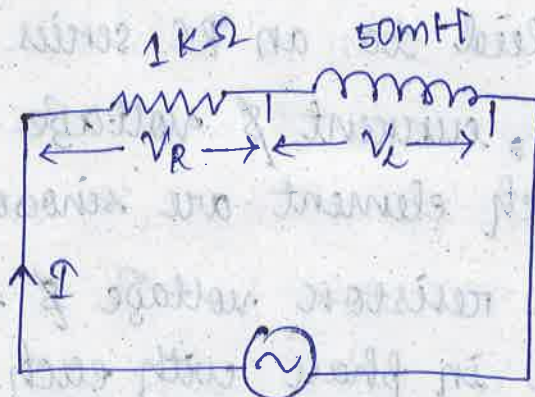 1KΩ 50mH
V_R V_L
I
~